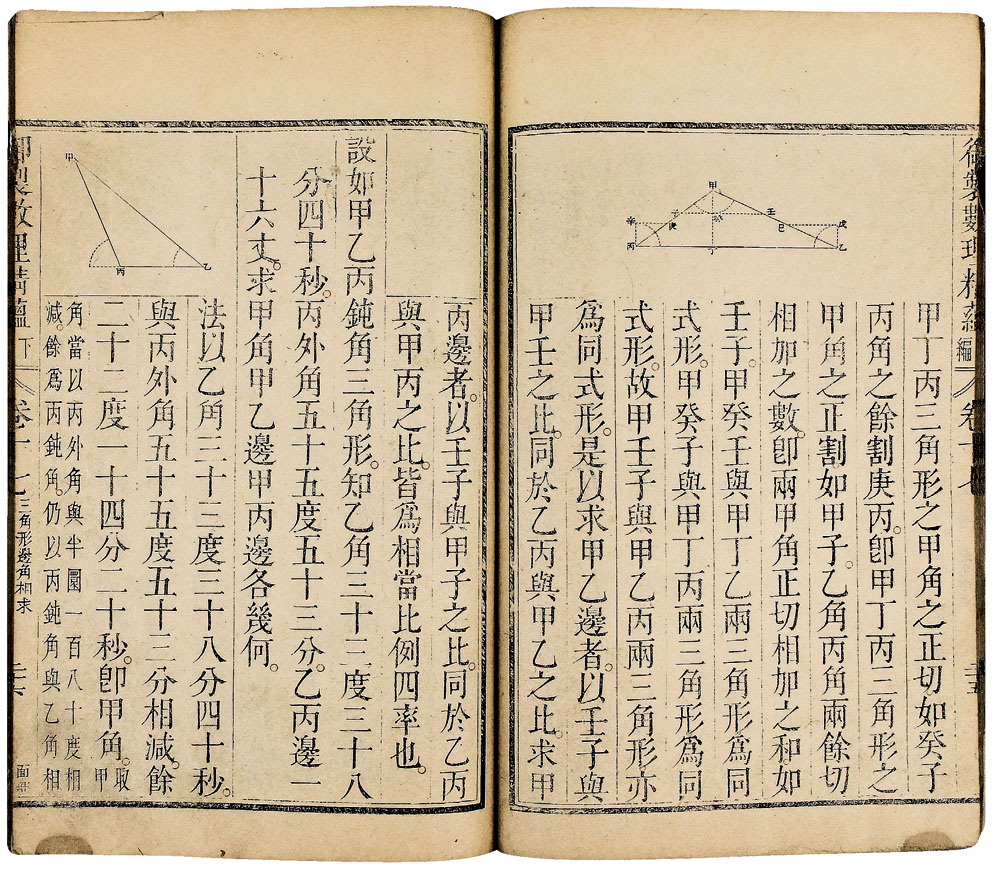 御製數理精蘊 下編 卷十七 三十五
甲 壬 戊 子 癸 己 辛 庚 丙 丁 乙
甲丁丙三角形之甲角之正切如癸子
丙角之餘割庚丙。卽甲丁丙三角形之
甲角之正割。如甲子。乙角丙角兩餘切
相加之數。卽兩甲角正切相加之和。如
壬子。甲癸壬與甲丁乙兩三角形爲同
式形。甲癸子與甲丁丙兩三角形爲同
式形。故甲壬子與甲乙丙兩三角形亦
爲同式形。是以求甲乙邊者。以壬子與
甲壬之比。同於乙丙與甲乙之比。求甲
丙邊者。以壬子與甲子之比。同於乙丙
與甲丙之比。皆爲相當比例四率也。
設如甲乙丙鈍角三角形。知乙角三十三度三十八
分四十秒。丙外角五十五度五十三分。乙丙邊一
十六丈。求甲角甲乙邊甲丙邊各幾何。
甲 丙 乙
法以乙角三十三度三十八分四十秒。
與丙外角五十五度五十三分相減。餘
二十二度一十四分二十秒。卽甲角。取甲
角當以丙外角與半圜一百八十度相
減。餘爲丙鈍角。仍以丙鈍角與乙角相
御製數理精蘊 下 卷十七 三角形邊角相求 三十六